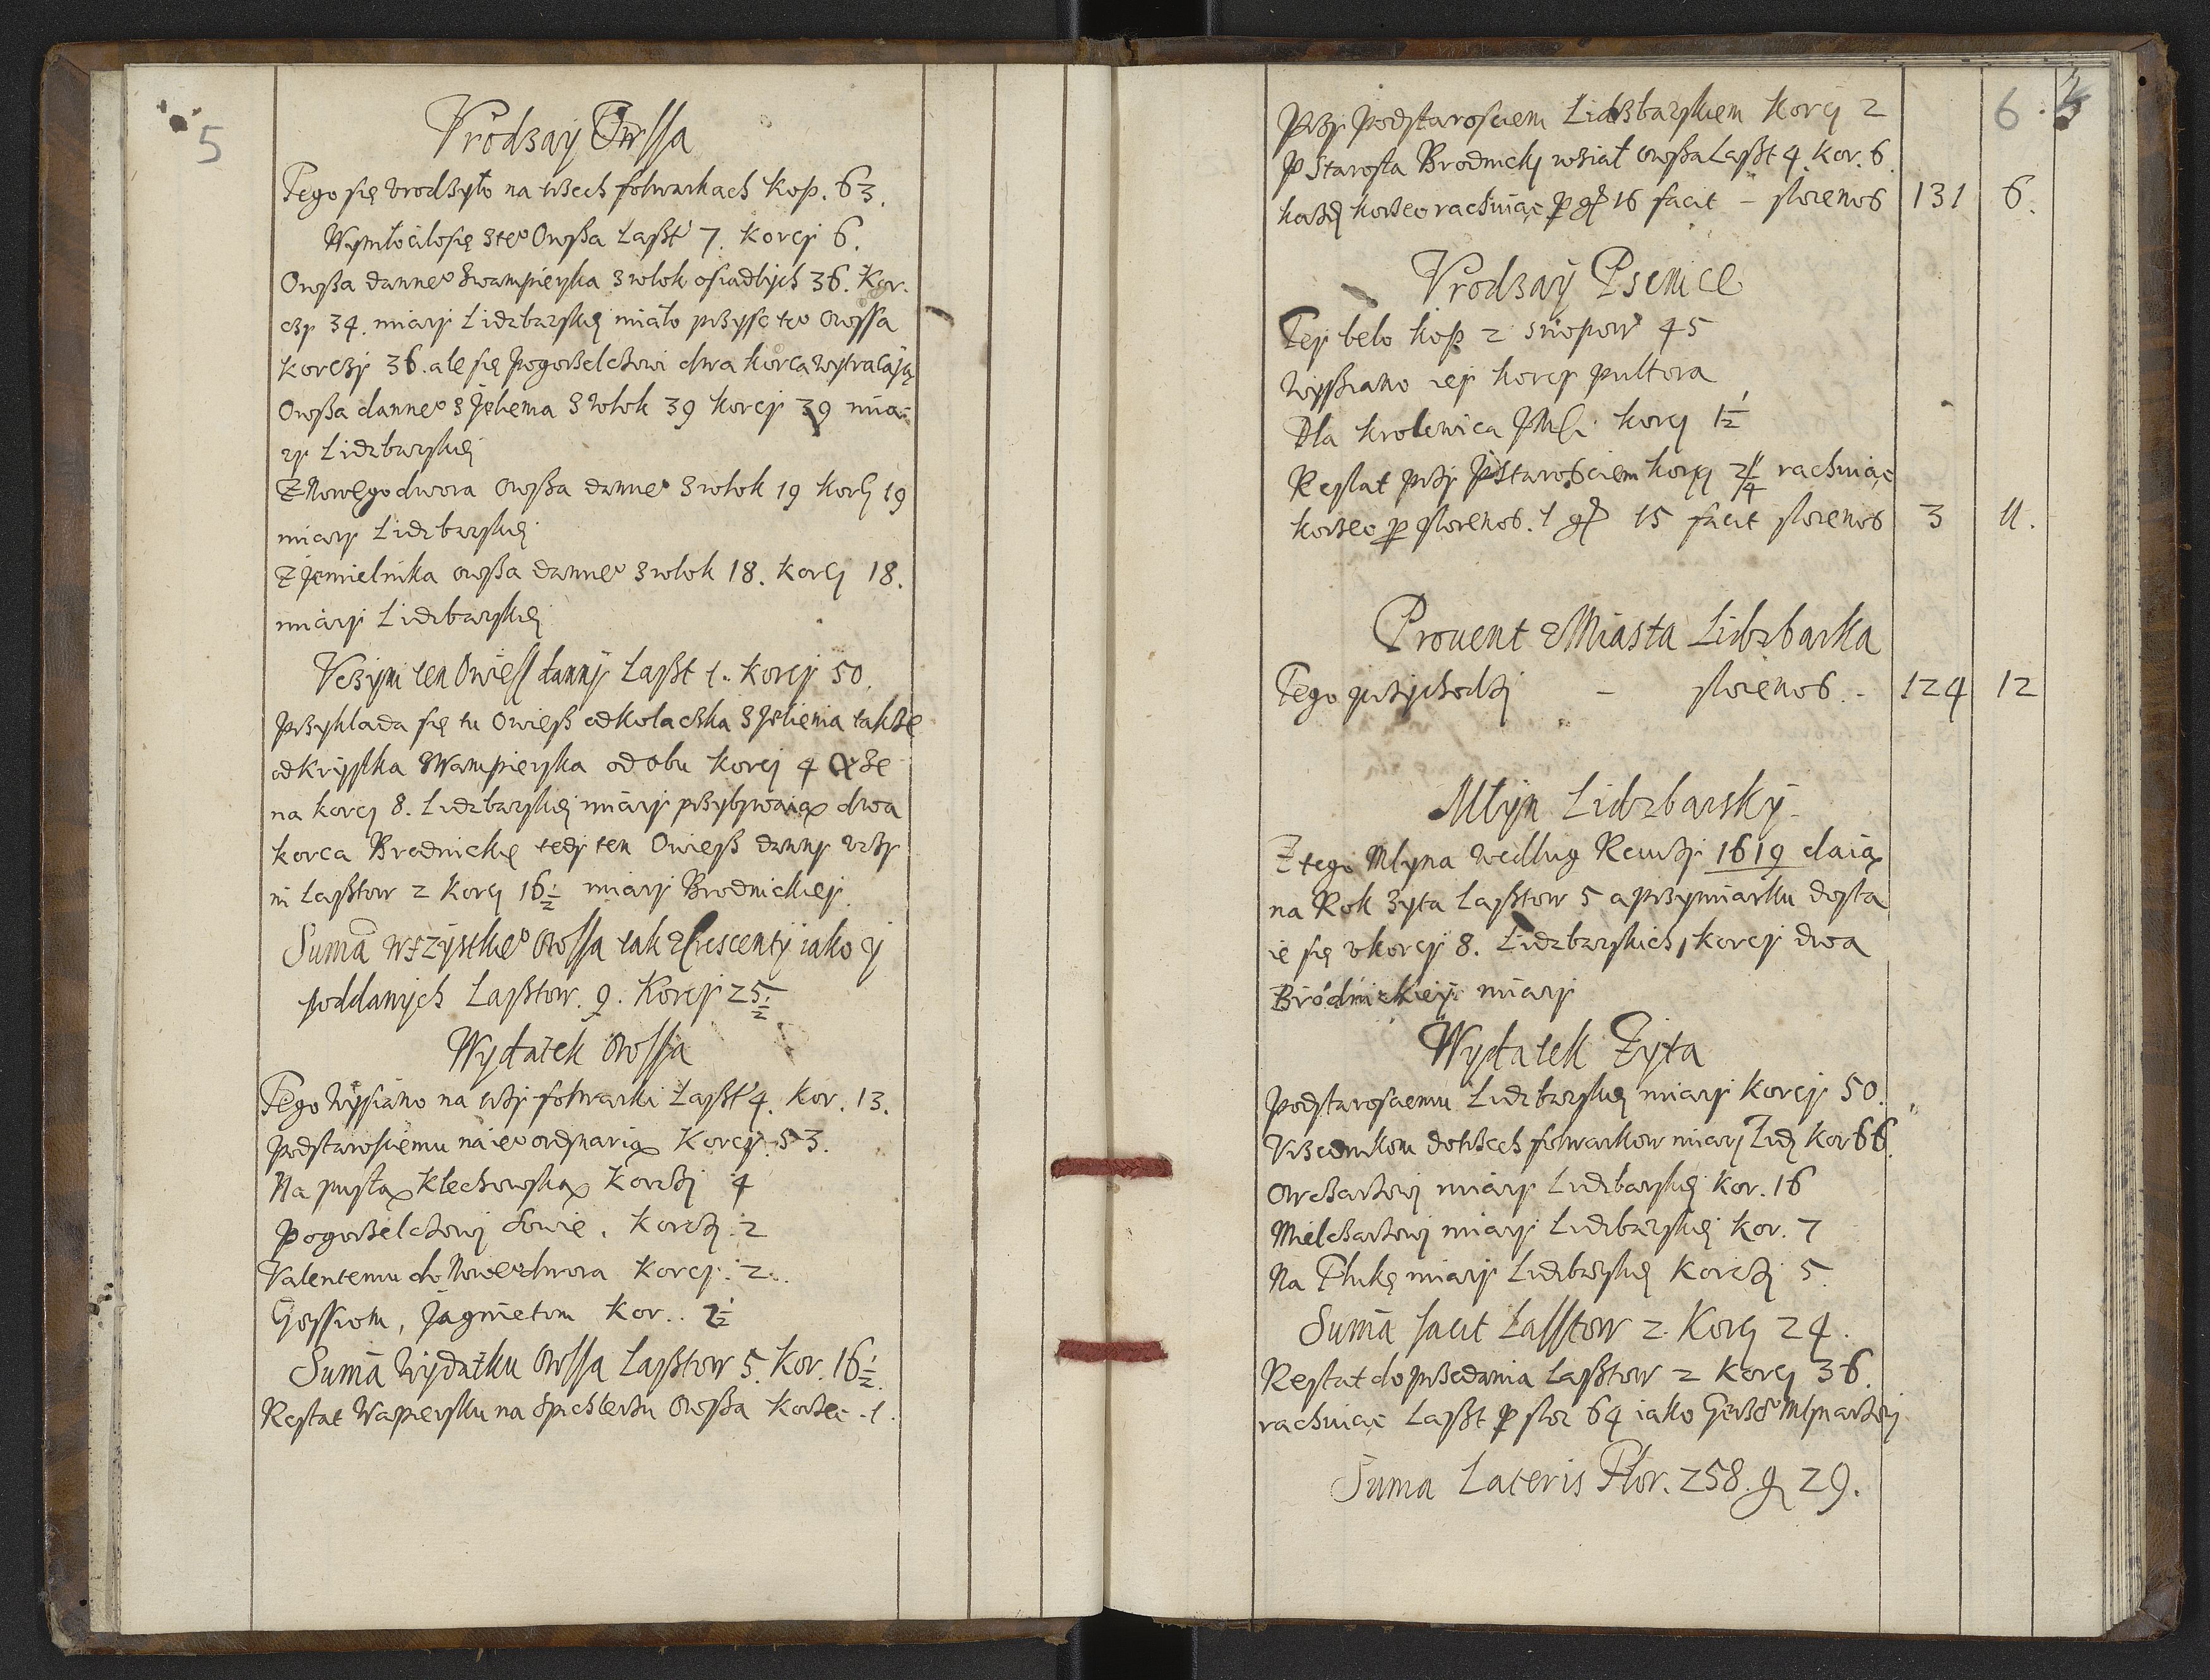 5
Vrodzaÿ Owssa
Tego się vrodzyło na trzech folwarkach Kop. 63.
Wymłociłosię z teº Owßa Laßt 7. Korcÿ 6.
Owßa danneº Zwampierska z wlok osiadłÿch 36. Kor.
czÿ 34. miarÿ Lidzbarskieÿ miało przÿsc teº Owssa
Korczÿ 36. ale się Pogorzelczowi dwa korca wytrącaią
Owßa danneº z Jelenia z wlok 39 Korcÿ 39 mia
rÿ Lidzbarskieÿ
Z Nowegodwora Owßa danneº z wlok 19 Korcÿ 19
miarÿ Lidzbarskieÿ
Z Jemielnika owßa danneº z wlok 18. Korcÿ 18.
miarÿ Lidzbarskieÿ
Vczÿni ten Owiess dannÿ Laßt 1. Korcÿ 50.
Przÿklada się tu Owieß od Kolaczka z Jelienia takze
od Krÿstka z Wampierska od obu Korcÿ 4 A ze
na korcÿ 8. Lidzbarskieÿ miarÿ przybywaią dwa
korca Brodnickie tedÿ ten Owieß dannÿ vczÿ
ni Laßtow 2 Korcÿ 16½ miarÿ Brodnickieÿ.
Suma wszÿstkieº Owssa tak z Crescentÿ iako ÿ
poddanÿch Laßtow. 9. Korcÿ 25½
Wÿdatek Owssa
Tego wÿsiano na trzÿ folwarki Laßt 4. Kor. 13.
Podstarosciemu na ieº ordÿnarią Korcÿ. 53.
Na pustą Klechowską Korczÿ 4
Pogorzelczowi Sowie. Korczÿ. 2
Valentemu do Noweºdwora Korcÿ. 2.
Gęssiom, Jagnietom Kor.. 2½
Suma Wÿdatku Owssa Laßtow 5. Kor. 16½.
Restat Wapiersku na Spichlerzu Owßa Korzec. 1.
6.
Przÿ Podstarosciem Lidzbarskiem Korcÿ 2
P Starosta Brodnickÿ wział owßa Laßt 4 Kor. 6
kazdÿ korzec rachuiąc p gr 16 facit – florenos 131 6.
Vrodzaÿ Psenice
Teÿ belo Kop 2 snopow 45
Wÿsziano ieÿ korcÿ pultora
Dla Krolewica JMsci korcÿ 1½
Restat przÿ PStarosciem Korcÿ rachuiąc
korzec p florenos. 1 gr 15 facit florenos 3 11.
Prouent z Miasta Lidzbarka
Tego przÿchodzi – florenos. – 124 12
Młÿn Lidzbarskÿ
Z tego Mlyna według Rewizÿ 1619 daią
na Rok Zyta Laßtow 5 a przymiarku dosta
ie się v korcÿ 8. Lidzbarskich, korcÿ dwa
Brodnickieÿ miarÿ
Wÿdatek Zÿta
Podstarosciemu Lidzbarskieÿ miarÿ Korcÿ 50.
Vrzednikom do trzech folwarkow miarÿ Lidz Kor 66.
Owczarzowi miarÿ Lidzbarskieÿ Kor. 16
Mielcharzowi miarÿ Lidzbarskieÿ Kor. 7
Na Plukę miarÿ Lidzbarskieÿ Korczÿ 5.
Suma facit Lasstow 2. Korcÿ 24.
Restat do przedania Laßtow 2 Korcÿ 36.
rachuiąc Laßt p flor 64 iako Mlynarzowi
Suma Lateris Flor. 258. g 29.